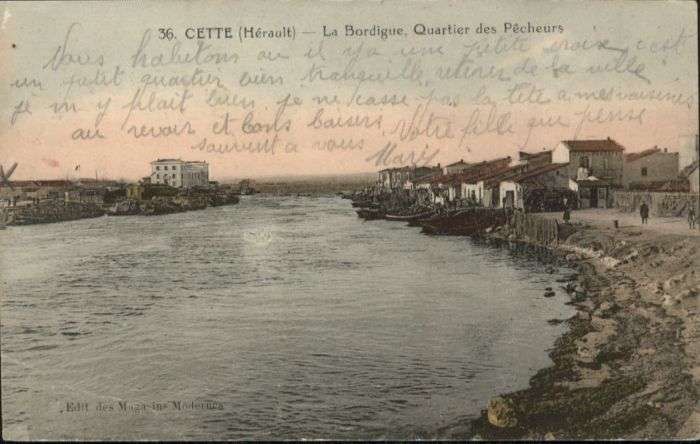 36. CETTE (Hérault) — La Bordigue, Quartier des Pêcheurs
Nous habitons ou il y a une petite croix, c'est
un petit quartier bien tranquille, retirer de la ville,
je m'y plait bien, je ne casse pas la tete a mes voisines
au revoir et bons baisers Votre fille qui pense
souvent a vous Marie
Edit des Magasins Modernes